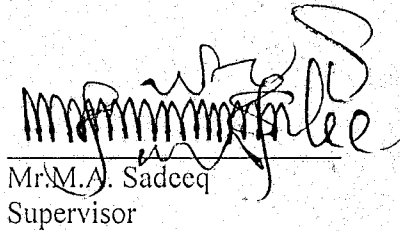 Mr.M.A. Sadeeq
Supervisor